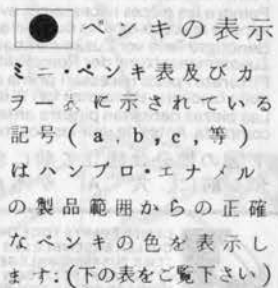 ペンキの表示
ミニ・ペンキ表及びカ
ラー表に示されている
記号(a,b,c,等)
はハンブロ・エナメル
の製品範囲からの正確
なペンキの色を表示し
ます:(下の表をご覧下さい)